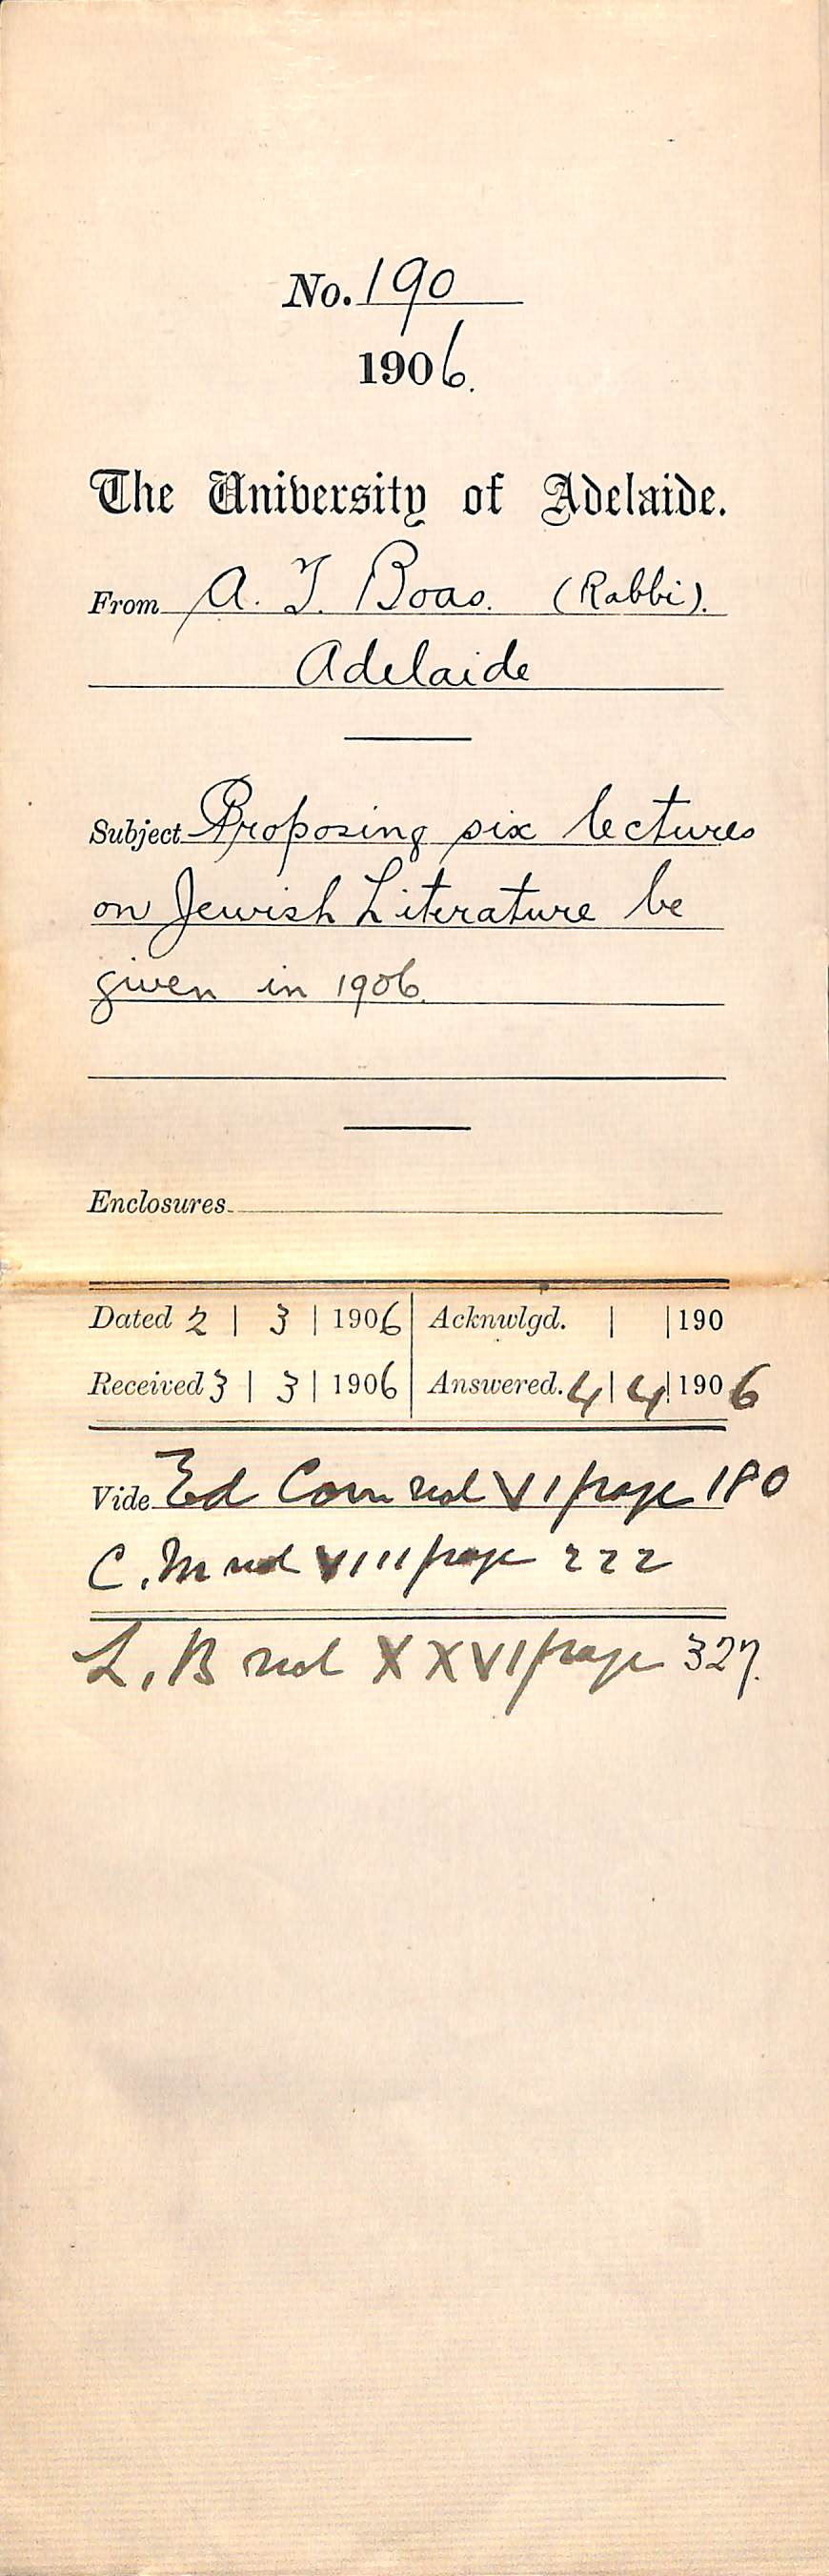 No. 190
1906.
The University of Adelaide.
From A. T. Boas. (Rabbi).
Adelaide
Subject Proposing six lectures
on Jewish Literature be
given in 1906.
Enclosures
Dated 2 | 3 | 1906 Acknwlgd. | | 190
Received 3 | 3 | 1906 Answered. 4 | 4 | 1906
Vide Ed Com vol VI page 180
C. M vol VIII page 222
L. B vol XXVI page 327.